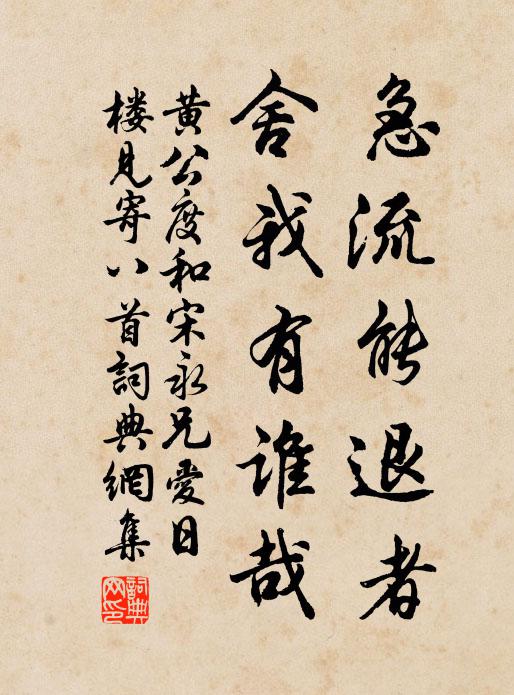 急流能退者
舍我有谁哉
黄公度和宋永兄爱日
楼见寄八首詞典網集
詞典网印